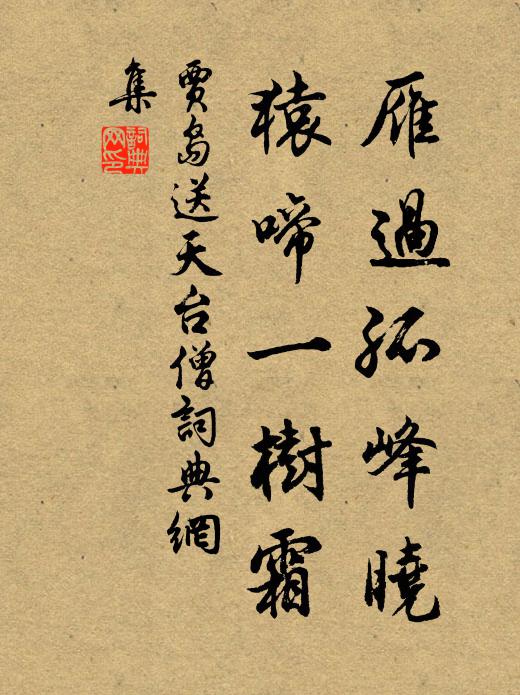 雁過孤峰曉
猿啼一樹霜
賈島送天台僧詞典網
集
詞典網印